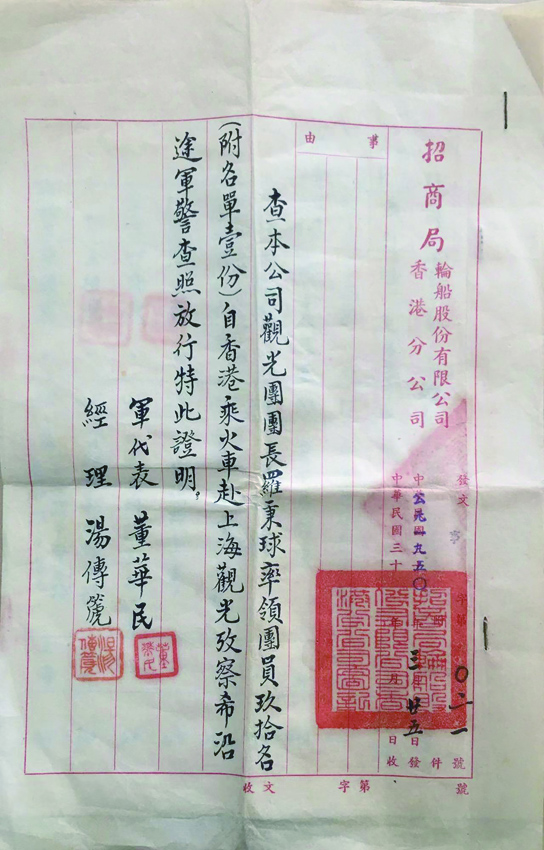 招商局輪船股份有限公司
香港分公司
發文 字第 〇二一 號
公元一九五〇年三月廿五日發
中華民國三十 年 月 日收 件
事由
查本公司觀光團團長羅秉球率領團員玖拾名
(附名單壹份)自香港乘火車赴上海觀光攷察希沿
途軍警查照放行特此證明。
軍代表 董華民
經理 湯傳篪
收文 字第 號